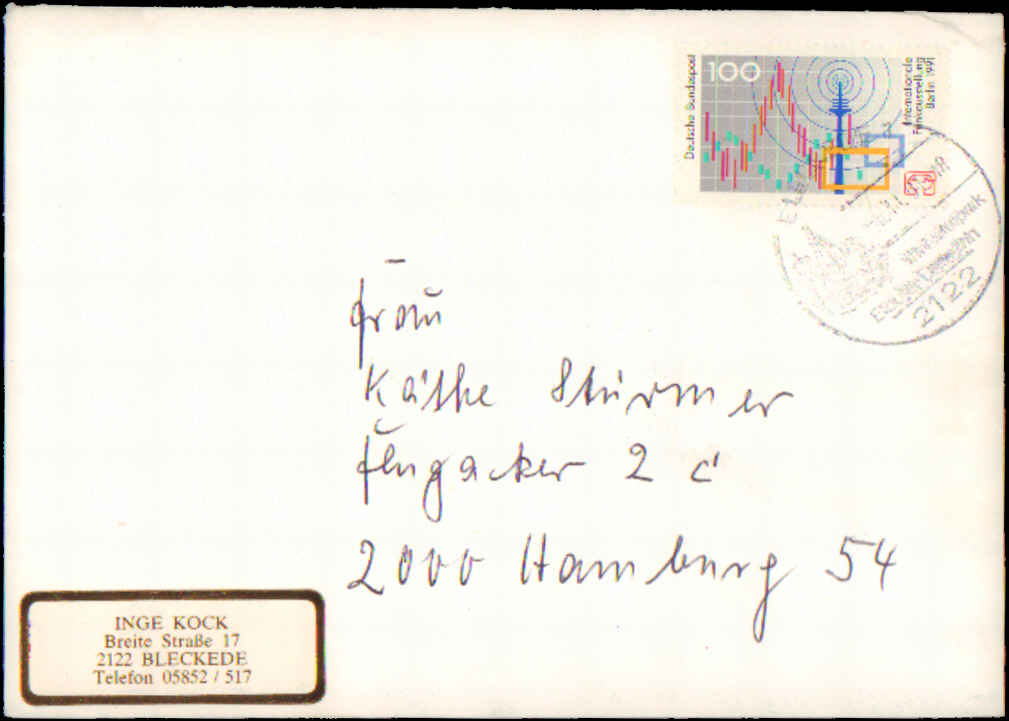 Deutsche Bundespost
100
Internationale
Funkausstellung
Berlin 1991
2122
Frau
Käthe Stürmer
Flugacker 2 c
2000 Hamburg 54
INGE KOCK
Breite Straße 17
2122 BLECKEDE
Telefon 05852 / 517